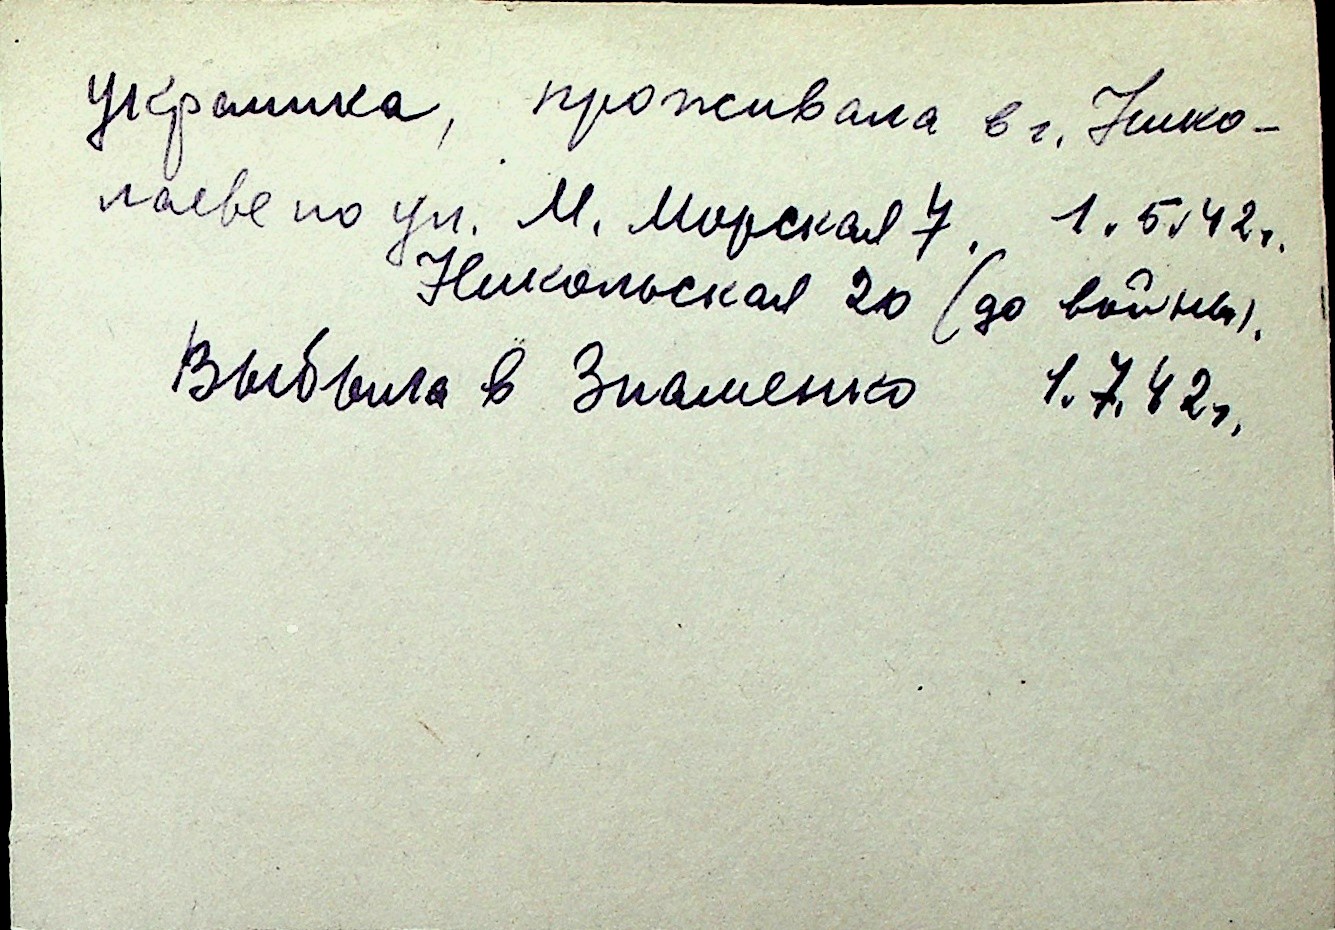 украинка, проживала в г. Нико-
лаеве по ул. М. Морская 7. 1.5.42г.
Никольская 20 (до войны).
Выбыла в Знаменко 1.7.42г.